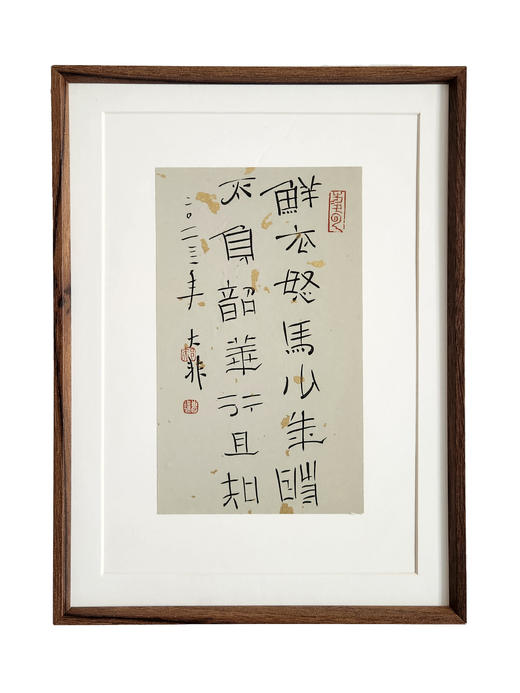 鮮衣怒馬少年時
不負韶華行且知
二〇二三年 大非